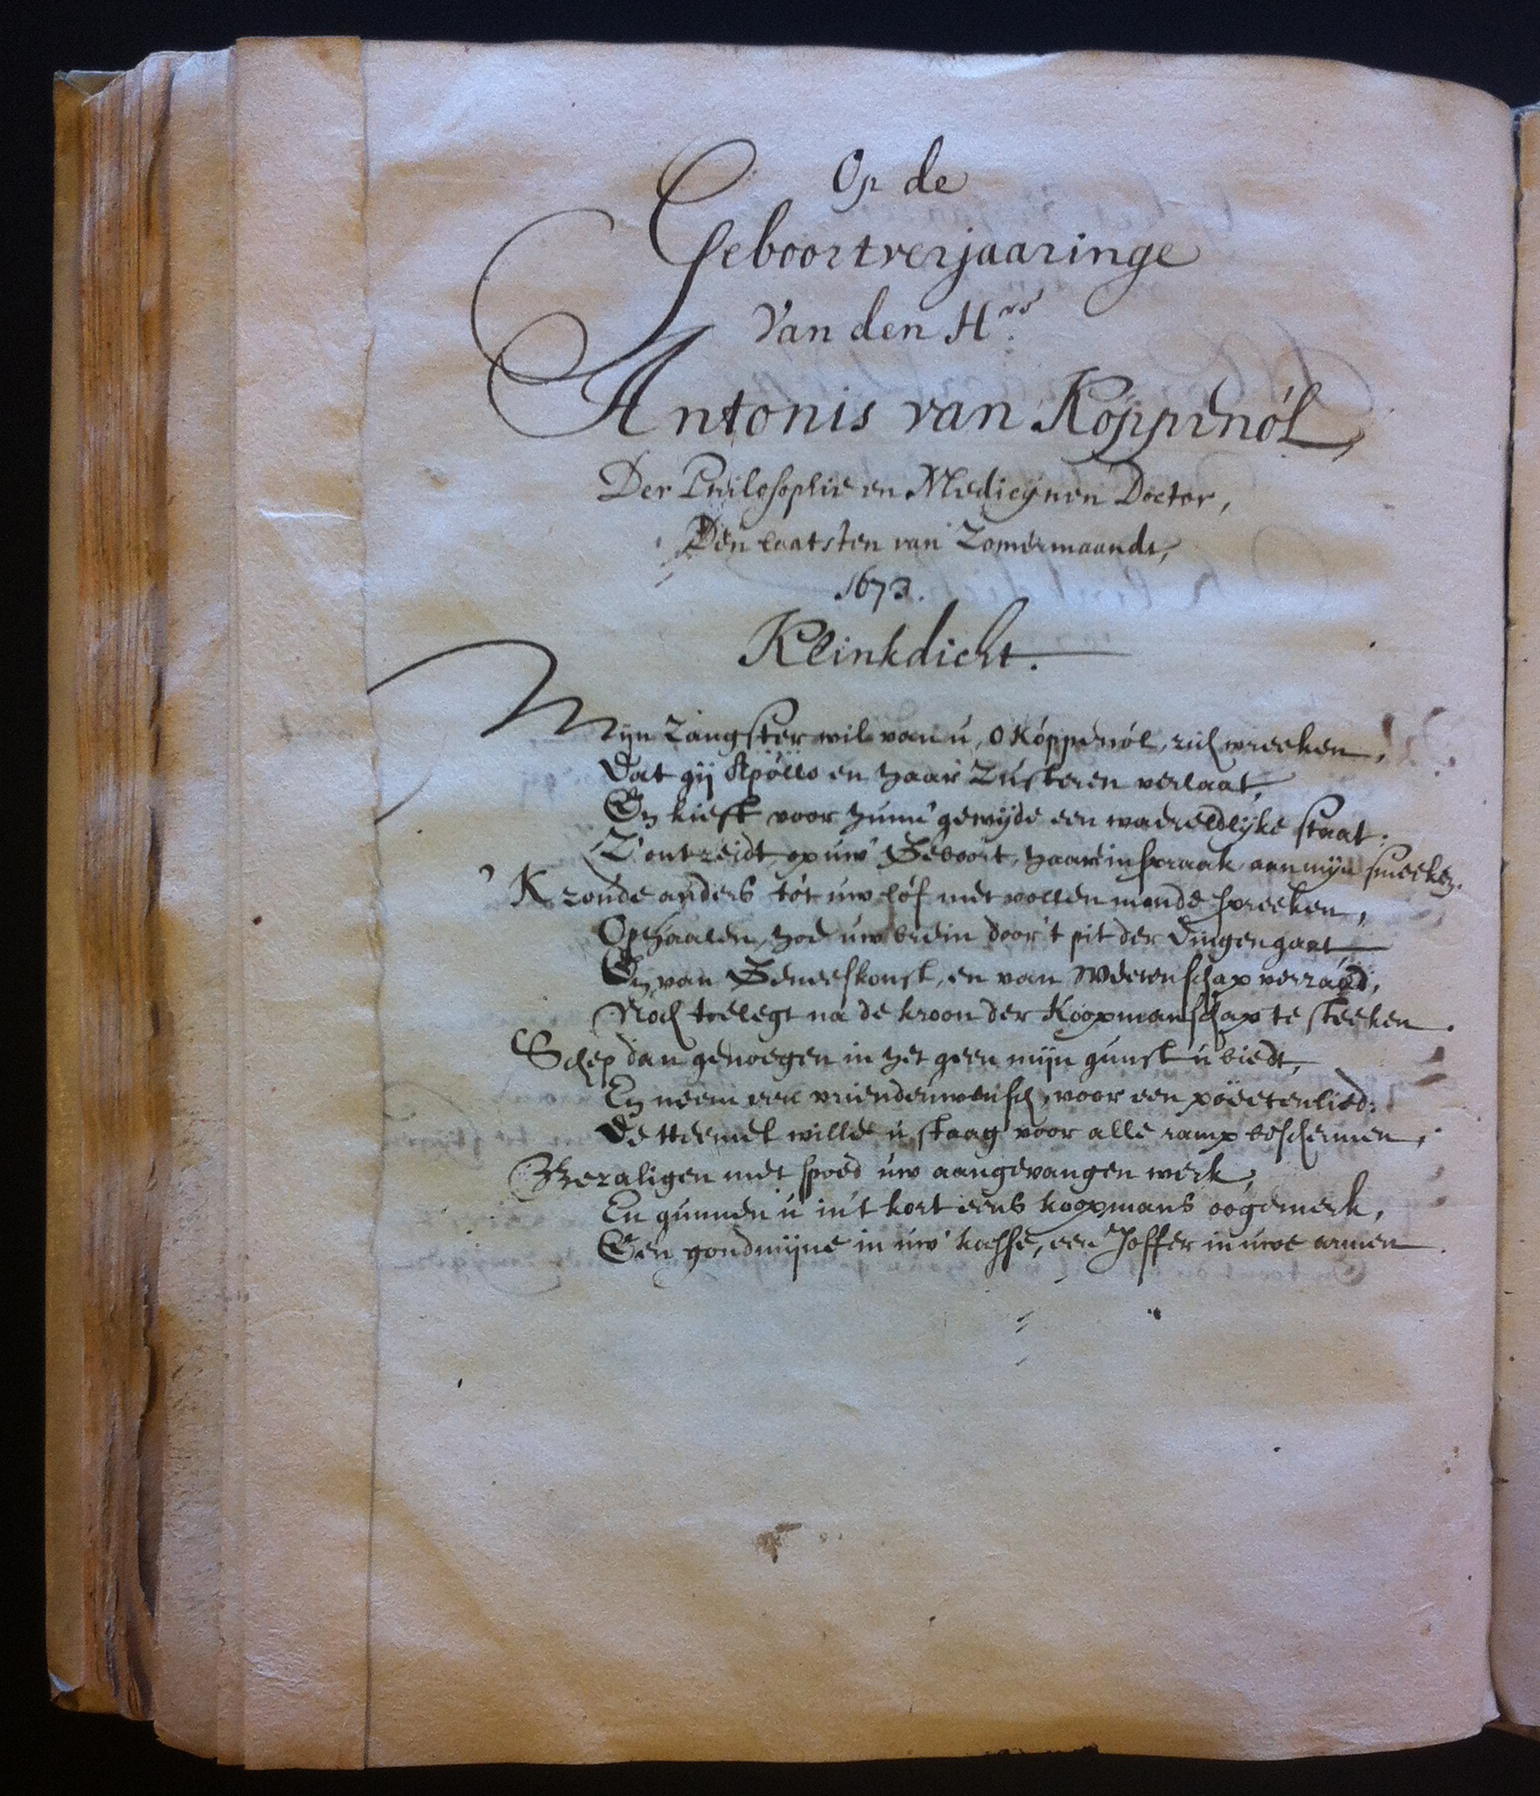 Op de
Geboortverjaaringe
Van den Hre
Antonis van Koppenól,
Der Philosophie en Medicynen Doctor,
Den laatsten van Zomermaandt,
1673.
Klinkdicht.
Myn Zangster wil van u, o Kóppenól, zich wreeken,
Dat gij Apóllo en haar Zusteren verlaat,
En kiest voor hunn' gewyde een waereldlyke staat:
Z'ontzeidt, op uw' Geboort, haar inspraak aan myn smeeken.
'K zoude anders tót uw lóf met vollen monde spreeken,
Ophaalen, hoe uw brein door 't pit der dingen gaat
En van Geneeskonst, en van Weetenschap verzaad,
Noch toelegt na de kroon der Koopmanschap te steeken.
Schep dan genoegen in het geen mijn gunst u biedt,
En neem een vriendenwensch, voor een poëetenlied:
De Heemel wille u staag voor alle ramp beschermen,
Bezaligen met spoed uw aangevangen werk,
En gunnen u in 't kort eens koopmans oogemerk,
Een goudmijne in uw' kasse, een Joffer in uwe armen.